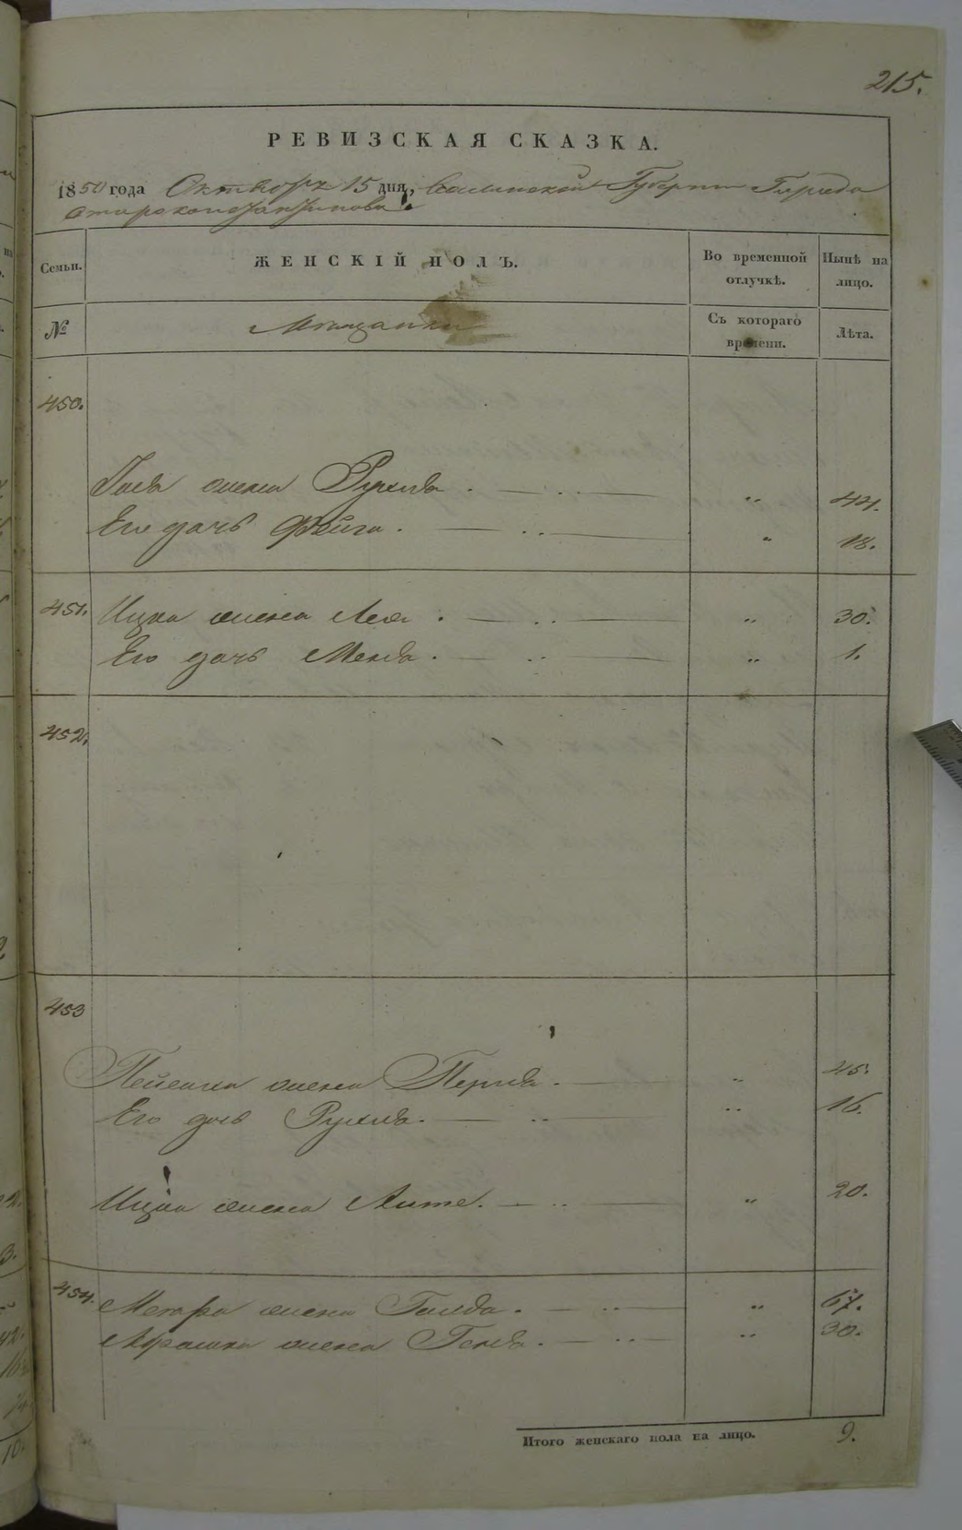 215.
РЕВИЗСКАЯ СКАЗКА.
1850 года Октября 15 дня, Волынской Губернии Города
Староконстантинова
Семьи. ЖЕНСКІЙ ПОЛЪ. Во временной отлучкѣ. Нынѣ на лицо.
№ Мещанки Съ котораго времени. Лѣта.
450.
жена Рухля . — .. — „ 44.
Его дочь Фейга . — .. — „ 18.
451. Ицка жена Лея . — .. — „ 30.
Его дочь . — .. — „ 1.
452.
453
жена Перля . — „ 45.
Его дочь Рухля . — .. — „ 16.
Ицка жена . — .. — „ 20.
454. жена Голда . — .. — „ 67.
Абрамка жена Геня . — .. — „ 30.
Итого женскаго пола на лицо. 9.